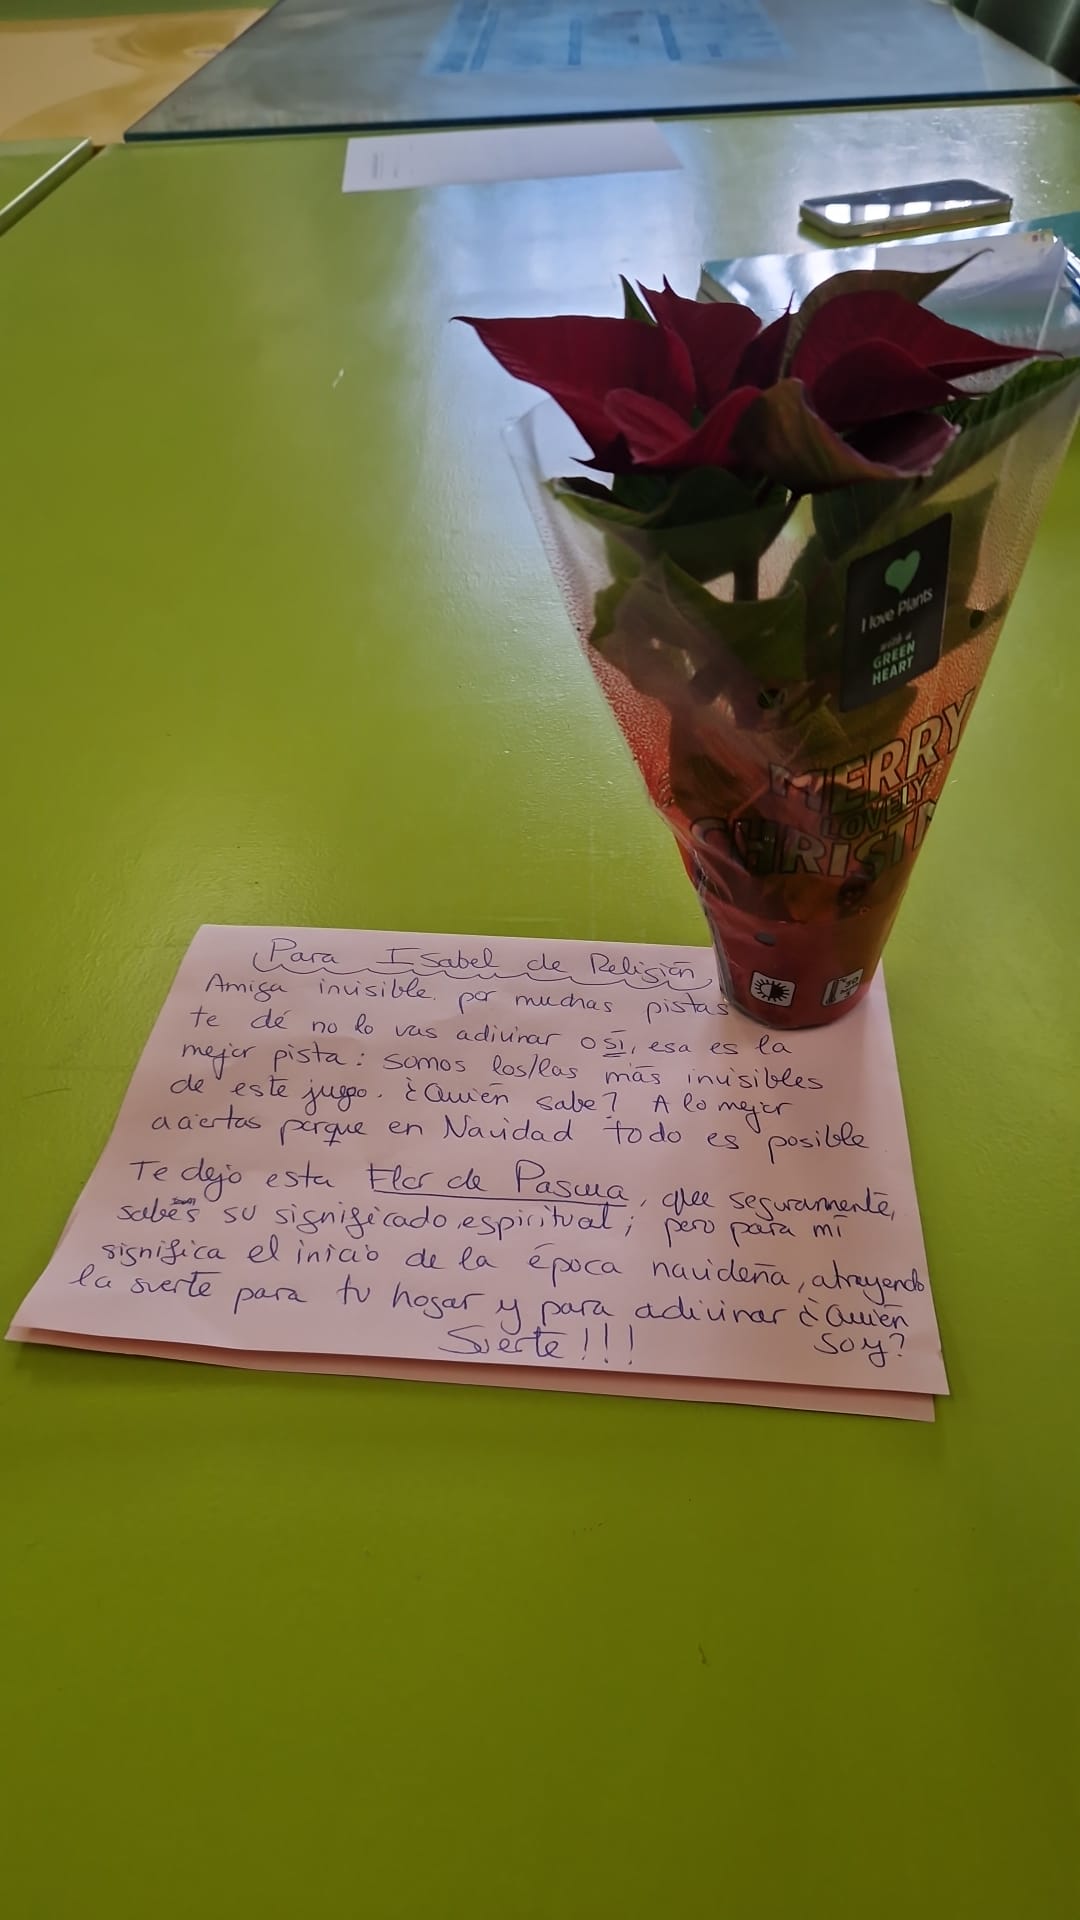 I love Plants
with a
GREEN
HEART
MERRY
LOVELY
CHRISTM
Para Isabel de Religión
Amiga invisible, por muchas pistas
te dé no lo vas adivinar o sí, esa es la
mejor pista: somos los/las más invisibles
de este juego. ¿Quién sabe? A lo mejor
aciertas porque en Navidad todo es posible
Te dejo esta Flor de Pascua, que seguramente,
sabes su significado espiritual; pero para mí
significa el inicio de la época navideña, atrayendo
la suerte para tu hogar y para adivinar ¿Quién
soy?
Suerte!!!